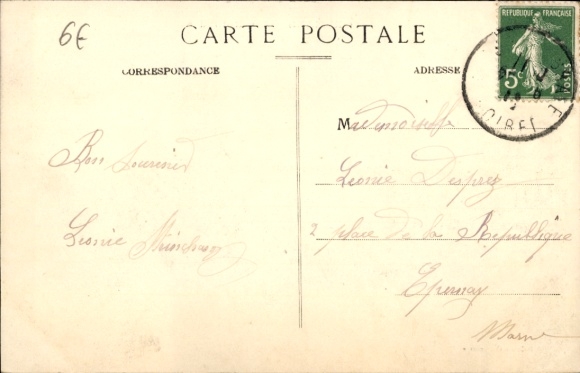 6€
CARTE POSTALE
CORRESPONDANCE
ADRESSE
REPUBLIQUE FRANÇAISE
5c
POSTES
LOIRET
Mademoiselle
Bon Souvenir
Léonie Desprez
2 place de la République
Léonie
Epernay
Marne